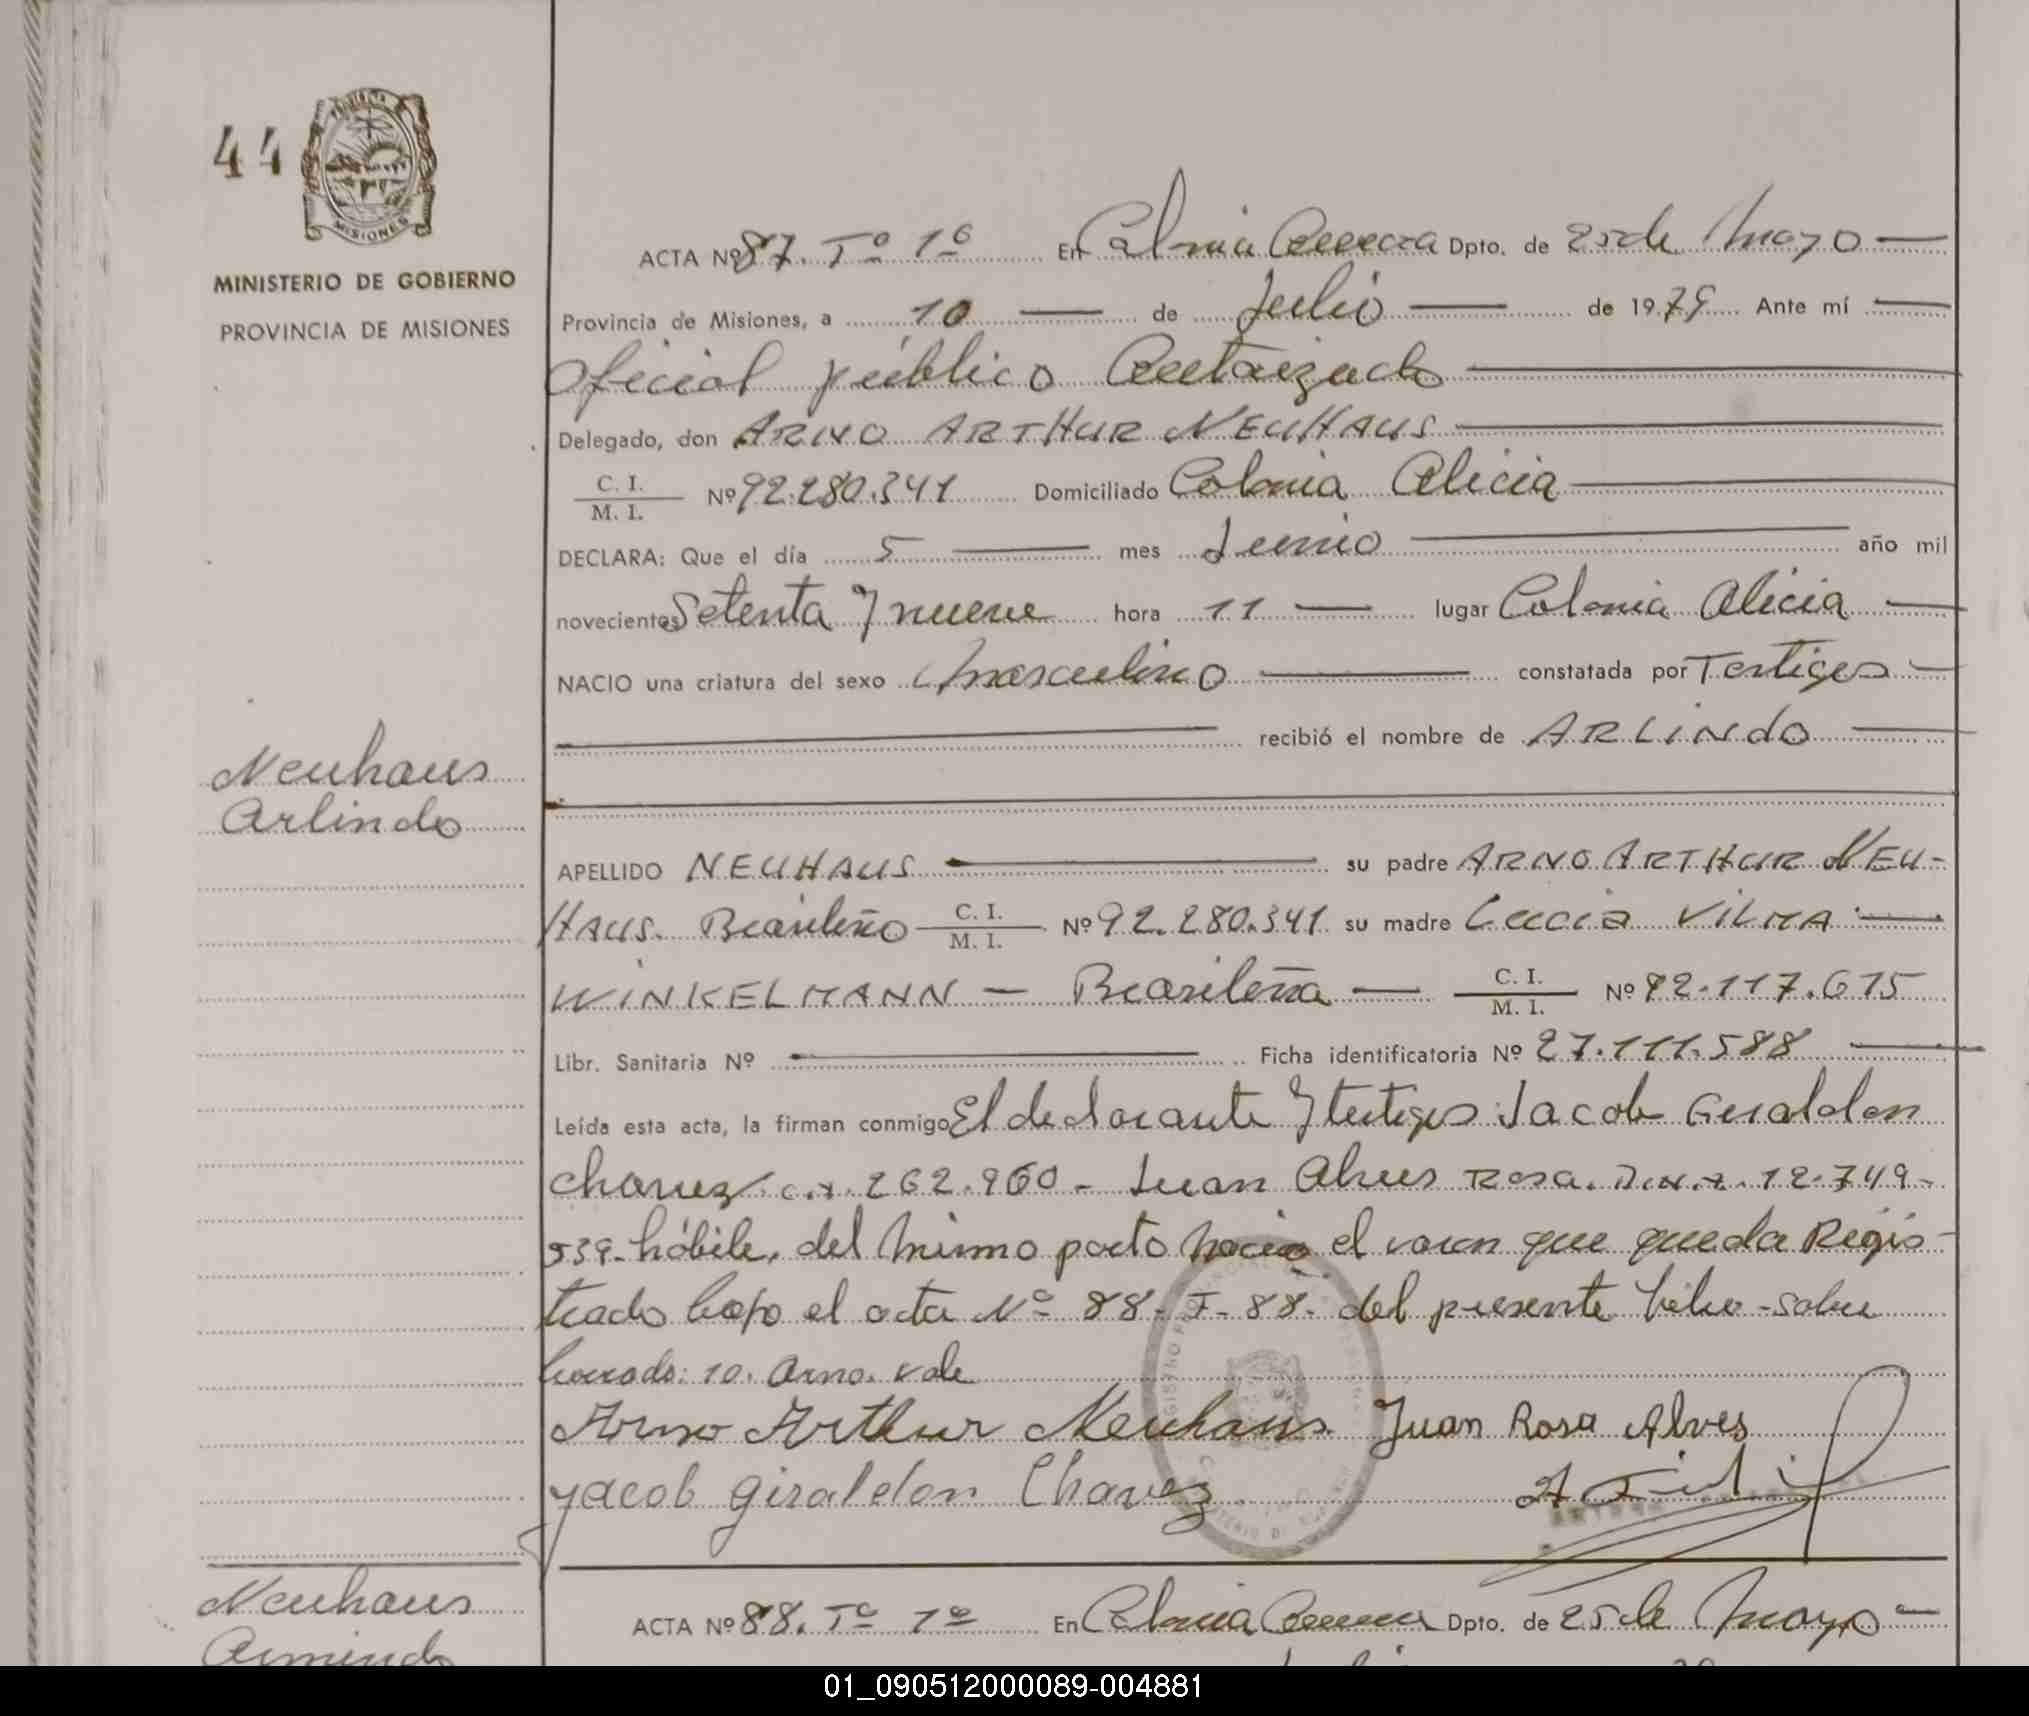 44
PROVINCIA
MISIONES
MINISTERIO DE GOBIERNO
PROVINCIA DE MISIONES
ACTA Nº 87. Tº 1º En Colonia Aurora Dpto. de 25 de Mayo
Provincia de Misiones, a 10 de Julio de 1979 Ante mí
Oficial público Autorizado
Delegado, don ARNO ARTHUR NEUHAUS
C. I.
M. I. Nº 92.280.341 Domiciliado Colonia Alicia
DECLARA: Que el día 5 mes Junio año mil
novecientos Setenta y nueve hora 11 lugar Colonia Alicia
NACIO una criatura del sexo Masculino constatada por Testigos
recibió el nombre de ARLINDO
Neuhaus
Arlindo
APELLIDO NEUHAUS su padre ARNO ARTHUR NEU-
HAUS. Brasileño C. I. M. I. Nº 92.280.341 su madre Lucia VILMA
WINKELMANN - Brasileña - C. I. M. I. Nº 92.117.615
Libr. Sanitaria Nº Ficha identificatoria Nº 27.111.588
Leída esta acta, la firman conmigo El declarante y testigos: Jacob Giraldon
Chavez C.I. 262.960 - Juan Alves Rosa. D.N.I. 12.749-
939- hábile, del mismo parto nacio el varon que queda Regis-
trado bajo el acta Nº 88- T- 88- del presente libro - sobre
borrado: 10. Arno. vale
Arno Arthur Neuhaus. Juan Rosa Alves
Jacob Giraldon Chavez
Neuhaus
Armindo
ACTA Nº 88. Tº 1º En Colonia Aurora Dpto. de 25 de Mayo
01_090512000089-004881